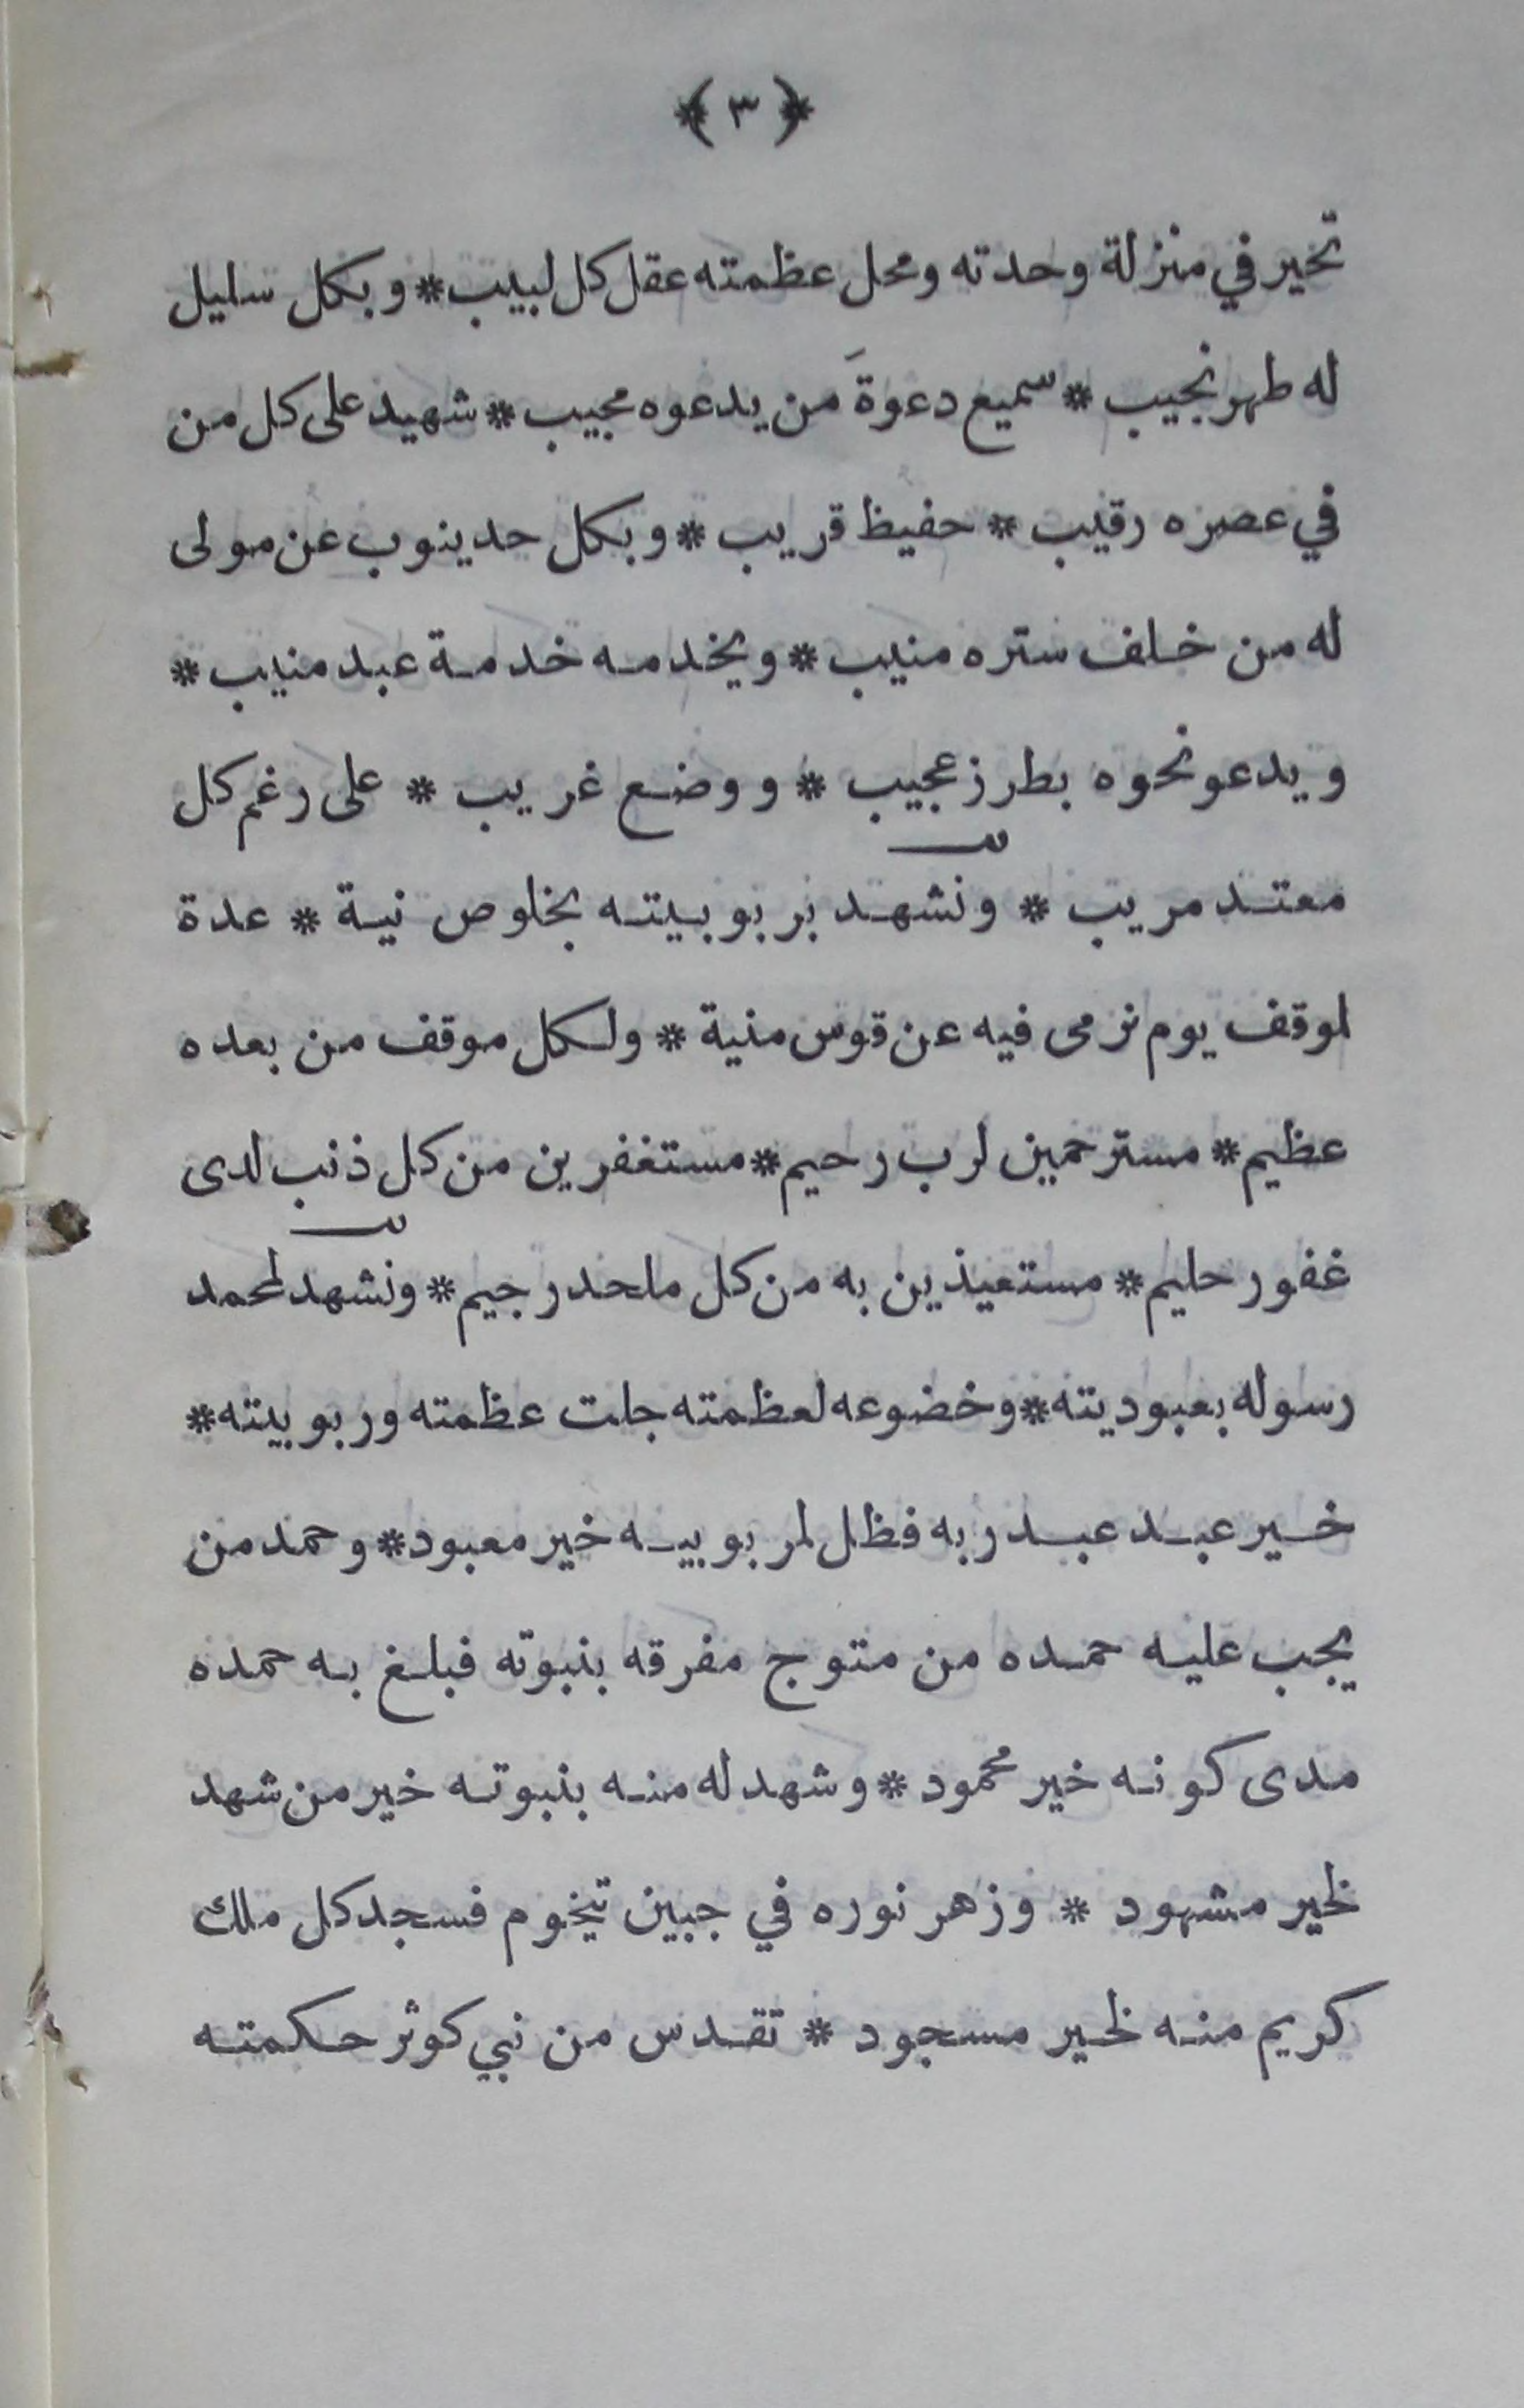 ﴿ ٣ ﴾
تحير في منزلة وحدته ومحل عظمته عقل كل لبيب * وبكل سليل
له طهر نجيب * سميع دعوةَ من يدعوه مجيب * شهيد على كل من
في عصره رقيب * حفيظ قريب * وبكل حد ينوب عن مولى
له من خلف ستره منيب * ويخدمه خدمة عبد منيب *
ويدعو نحوه بطرز عجيب * ووضع غريب * على رغم كل
معتد مريب * ونشهد بربوبيته بخلوص نية * عدة
لموقف يوم نرمى فيه عن قوس منية * ولكل موقف من بعده
عظيم * مسترحمين لرب رحيم * مستغفرين من كل ذنب لدى
غفور حليم * مستعيذين به من كل ملحد رجيم * ونشهد لمحمد
رسوله بعبوديته * وخضوعه لعظمته جلت عظمته وربوبيته *
خير عبد عبد ربه فظل لمربوبيه خير معبود * وحمد من
يجب عليه حمده من متوج مفرقه بنبوته فبلغ به حمده
مدى كونه خير محمود * وشهد له منه بنبوته خير من شهد
لخير مشهود * وزهر نوره في جبين تيخوم فسجد كل ملك
كريم منه لخير مسجود * تقدس من نبي كوثر حكمته